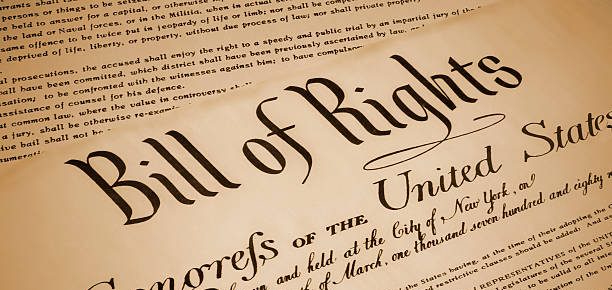 persons or things to be seized.
be held to answer for a capital, or otherwise infamous
the land or Naval forces, or in the Militia, when in actual
same offence to be twice put in jeopardy of life or limb; nor shall be compelled in any
deprived of life, liberty, or property, without due process of law; nor shall private property
prosecutions, the accused shall enjoy the right to a speedy and public trial by an impartial jury of the
shall have been committed, which district shall have been previously ascertained by law, and
to be confronted with the witnesses against him; to have compulsory
assistance of counsel for his defence.
common law, where the value in controversy shall
a jury, shall be otherwise re-exam
bail shall not be
Bill of Rights
Congreſs OF THE United States
and held at the City of New York, on
of March, one thousand seven hundred and eighty
the States having, at the time of their adopting the
restrictive clauses should be added: And
REPRESENTATIVES of the UNITED
Legislatures of the several